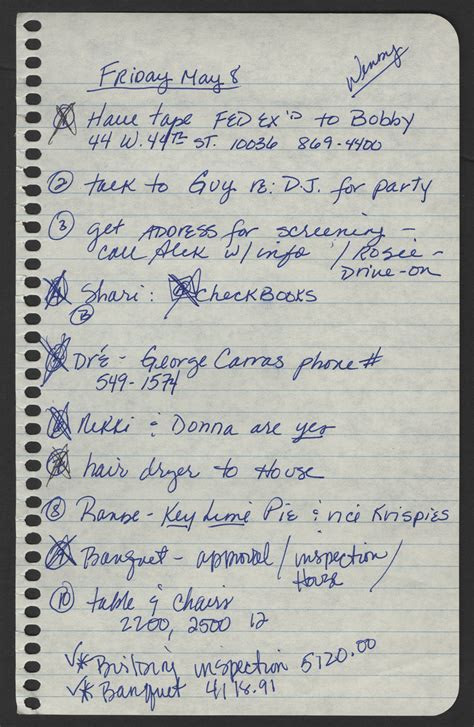 Wendy
Friday May 8
① Have tape FEDEX'D to Bobby
44 W. 44TH ST. 10036 869-4400
② talk to Guy re: D.J. for party
③ get ADDRESS for screening -
call Alek w/info / Rosie -
Drive-on
④ Shari: checkBooks
⑤ Dr'e - George Carras phone #
549-1574
⑥ Nikki & Donna are yes
⑦ hair dryer to House
⑧ - Key Lime Pie & rice Krispies
⑨ Banquet - approval / inspection /
House
⑩ table & chairs
2200, 2500 12
✓* Building inspection 5720.00
✓* Banquet 4118.91